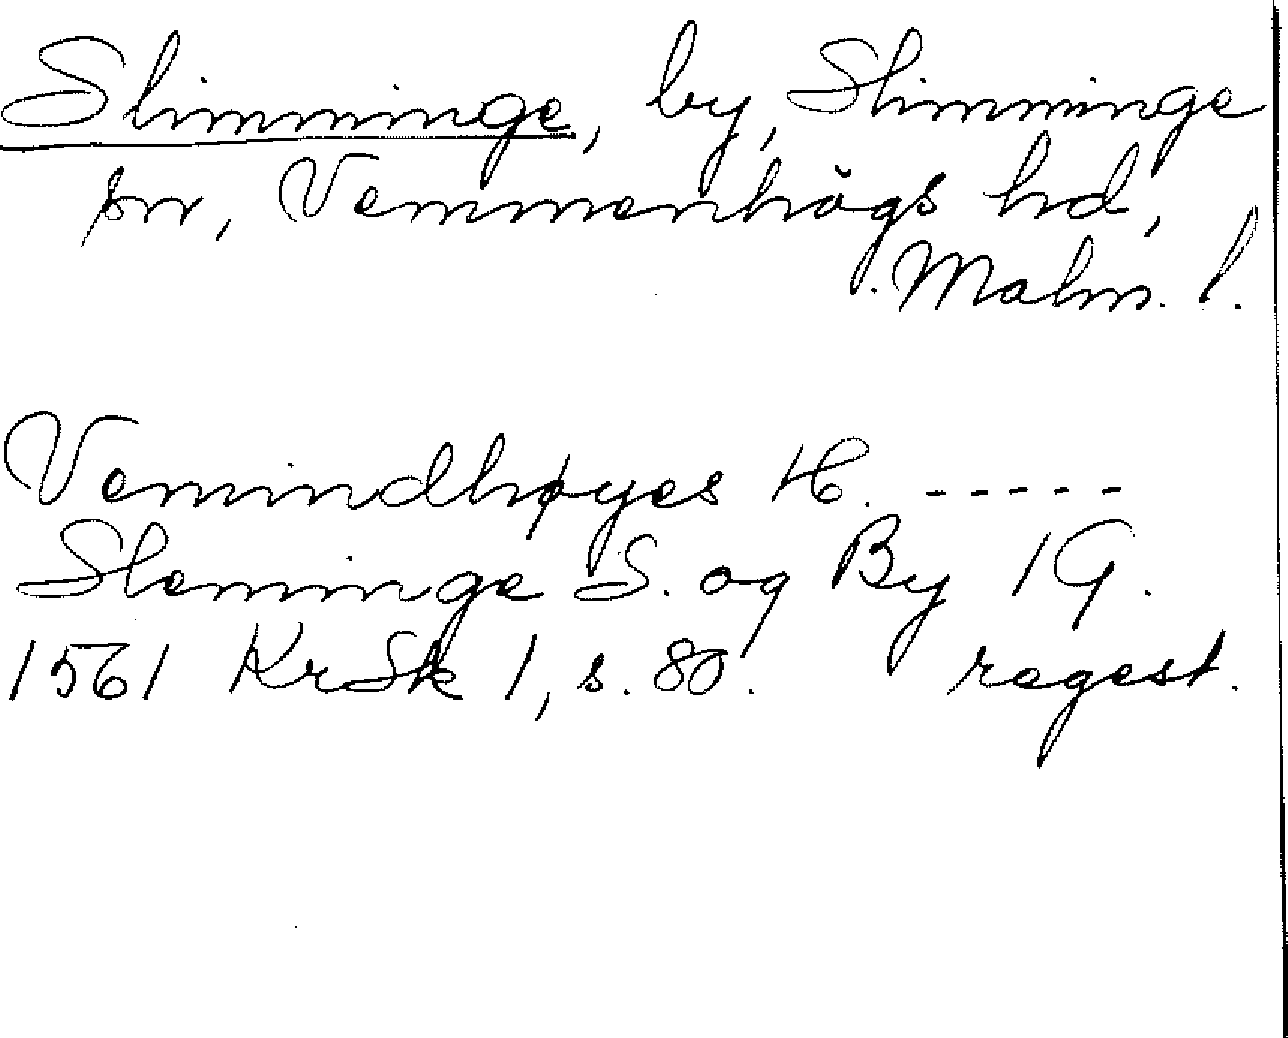 Slimminge, by, Slimminge
sn, Vemmenhögs hd,
Malm. l.
Vemindhøyes H. -----
Sleminge S. og By 1 G.
1561 KrSk 1, s. 80. regest.